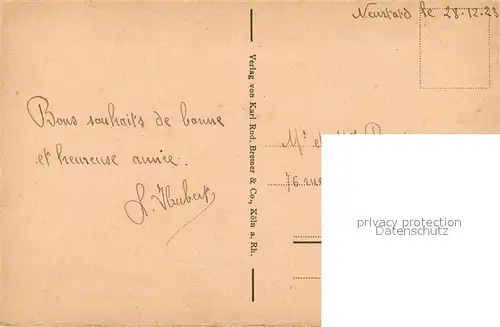 Neustadt le 28.12.23
Bons souhaits de bonne
et heureuse année.
H. Hubert
Verlag von Karl Rud. Bremer & Co., Köln a. Rh.
Mr et
76 rue
privacy protection
Datenschutz